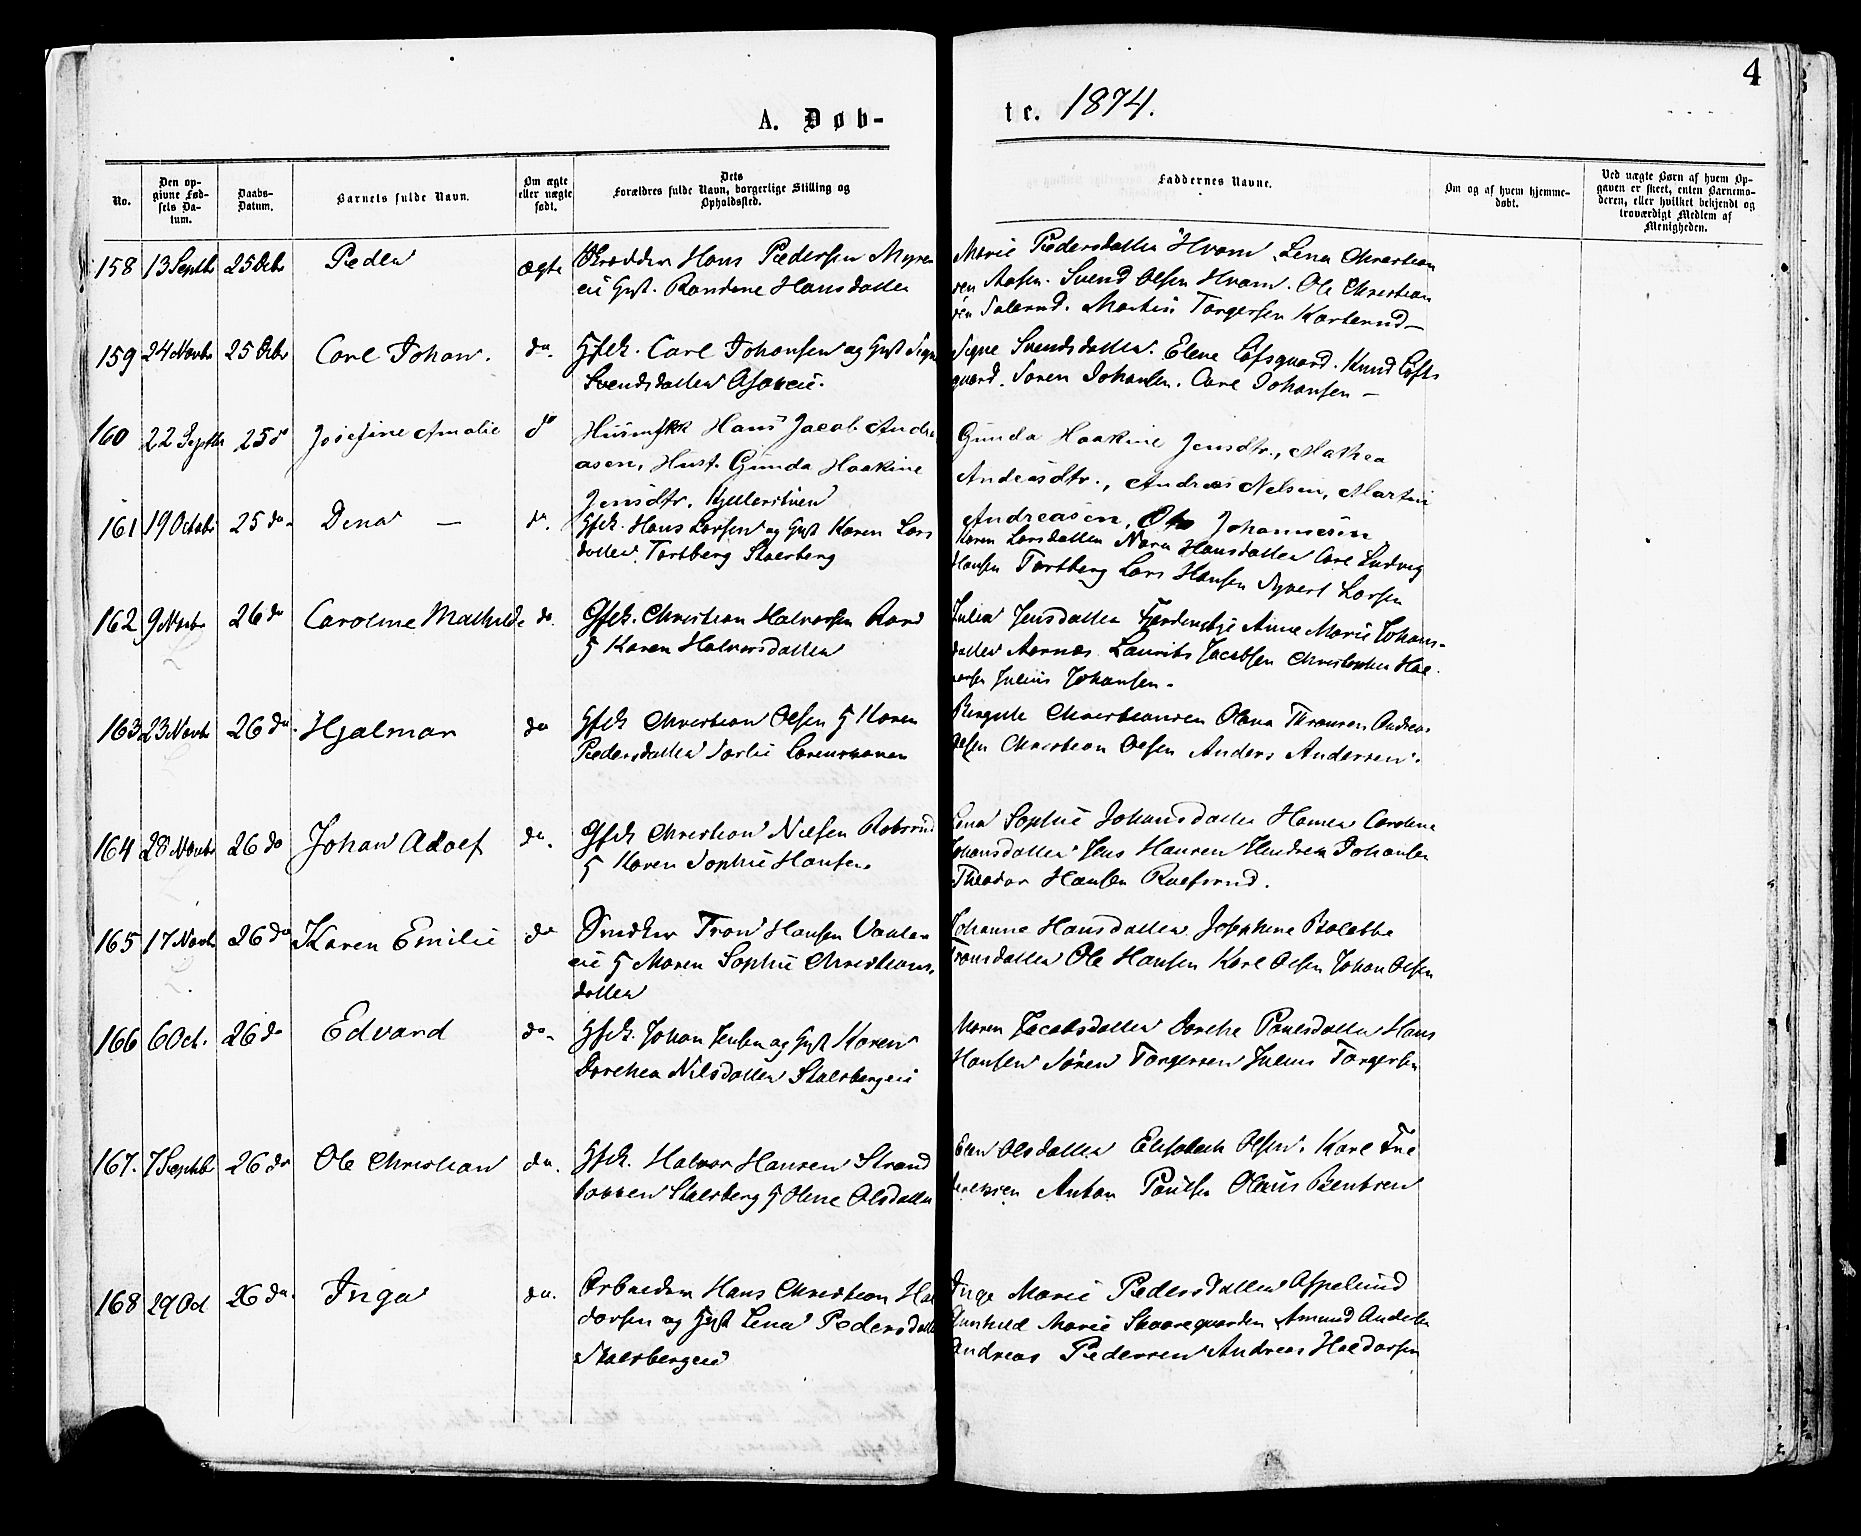 4
A. Døb-
te. 1874.
No.
Den opgivne Fødsels Datum.
Daabs-Datum.
Barnets fulde Navn.
Om ægte eller uægte født.
Dets Forældres fulde Navn, borgerlige Stilling og Opholdssted.
Faddernes Navne.
Om og af hvem hjemmedøbt.
Ved uægte Børn af hvem Opgaven er skeet, enten Barnemoderen, eller hvilket bekjendt og troværdigt Medlem af Menigheden.
158 13 Septb 25 Octbr Peder ægte Skrædder Hans Pedersen Myren
eie Hust. Randine Hansdatter
Marie Pedersdatter Hvam Lena Christian
sen Aasen. Svend Olsen Hvam. Ole Christian
sen Martin Torgersen
159 24 Novbr 25 Octbr Carl Johan. do. Gfsk. Carl Johansen og Hust Signe
Svendsdatter
Signe Svendsdatter. Elene Lofsgaard. Knud Lofts
gaard. Søren Johansen. Carl Johansen –
160 22 Septb 25 do Josefine Amalie do Husm Hans Jacob Andre
asen, Hust. Gunda Haakine
Jensdtr. Kjellerstuen
Gunda Haakine Jensdtr., Mathea
Andersdtr., Andreas Nelsen, Martin
Andreasen, Johannesen
161 19 Octobr 25 do. Dina – do. Gfsk. Hans Larsen og Hust Karen Lars
datter Tortberg Stalsberg
Karen Larsdatter Hansdatter Carl Ludvig
Hansen Tortberg Lars Hansen Syvert Larsen
162 9 Novbr 26 do Caroline Mathilde do. Gfsk. Christian Halvorsen
H Karen Halvorsdatter
Julia Jensdatter Anne Marie Johans-
datter Aarnæs Laurits Jacobsen Christopher Hal
vorsen Julius Johansen.
163 23 Novbr 26 do. Hjalmar do Gfsk Christian Olsen H Karen
Pedersdatter
Christiansen Olava Thronsen Andreas
Olsen Christian Olsen Anders Andersen.
164 28 Novbr 26 do Johan Adolf do. Gfsk Christian Nilsen
H Karen Sophie Hansen.
Lena Sophie Johansdatter Caroline
Johansdatter Jens Hansen Hendrik Johansen
Theodor Hansen
165 17 Novbr 26 do Karen Emilie do Snedker Tron Hansen
eie H Maren Sophie Christians
datter
Johanne Hansdatter Josephine
Tronsdatter Ole Hansen Karl Olsen Johan Olsen
166 6 Oct. 26 do Edvard do. Gfsk. Johan Jensen og Hust Karen
Dorthea Nilsdatter Stalsbergeie
Maren Jacobsdatter Dorthe Paulsdatter Hans
Hansen Søren Torgersen Julius Torgersen
167. 7 Septbr 26 do Ole Christian do. Gfsk. Halvor Hansen Strand
Stalsberg H Oline Olsdatter
Olsdatter Elisabeth Olsen. Karl Fre
deriksen Anton Paulsen Olaus Bentsen
168 29 Oct 26 do. Inga do. Arbeider Hans Christian Hal
dorsen og Hust Lena Pedersdatter
Stalsbergeie
Inge Marie Pedersdatter Aspelund
Gunhild Marie Amund Andersen
Andreas Pedersen Andreas Haldorsen